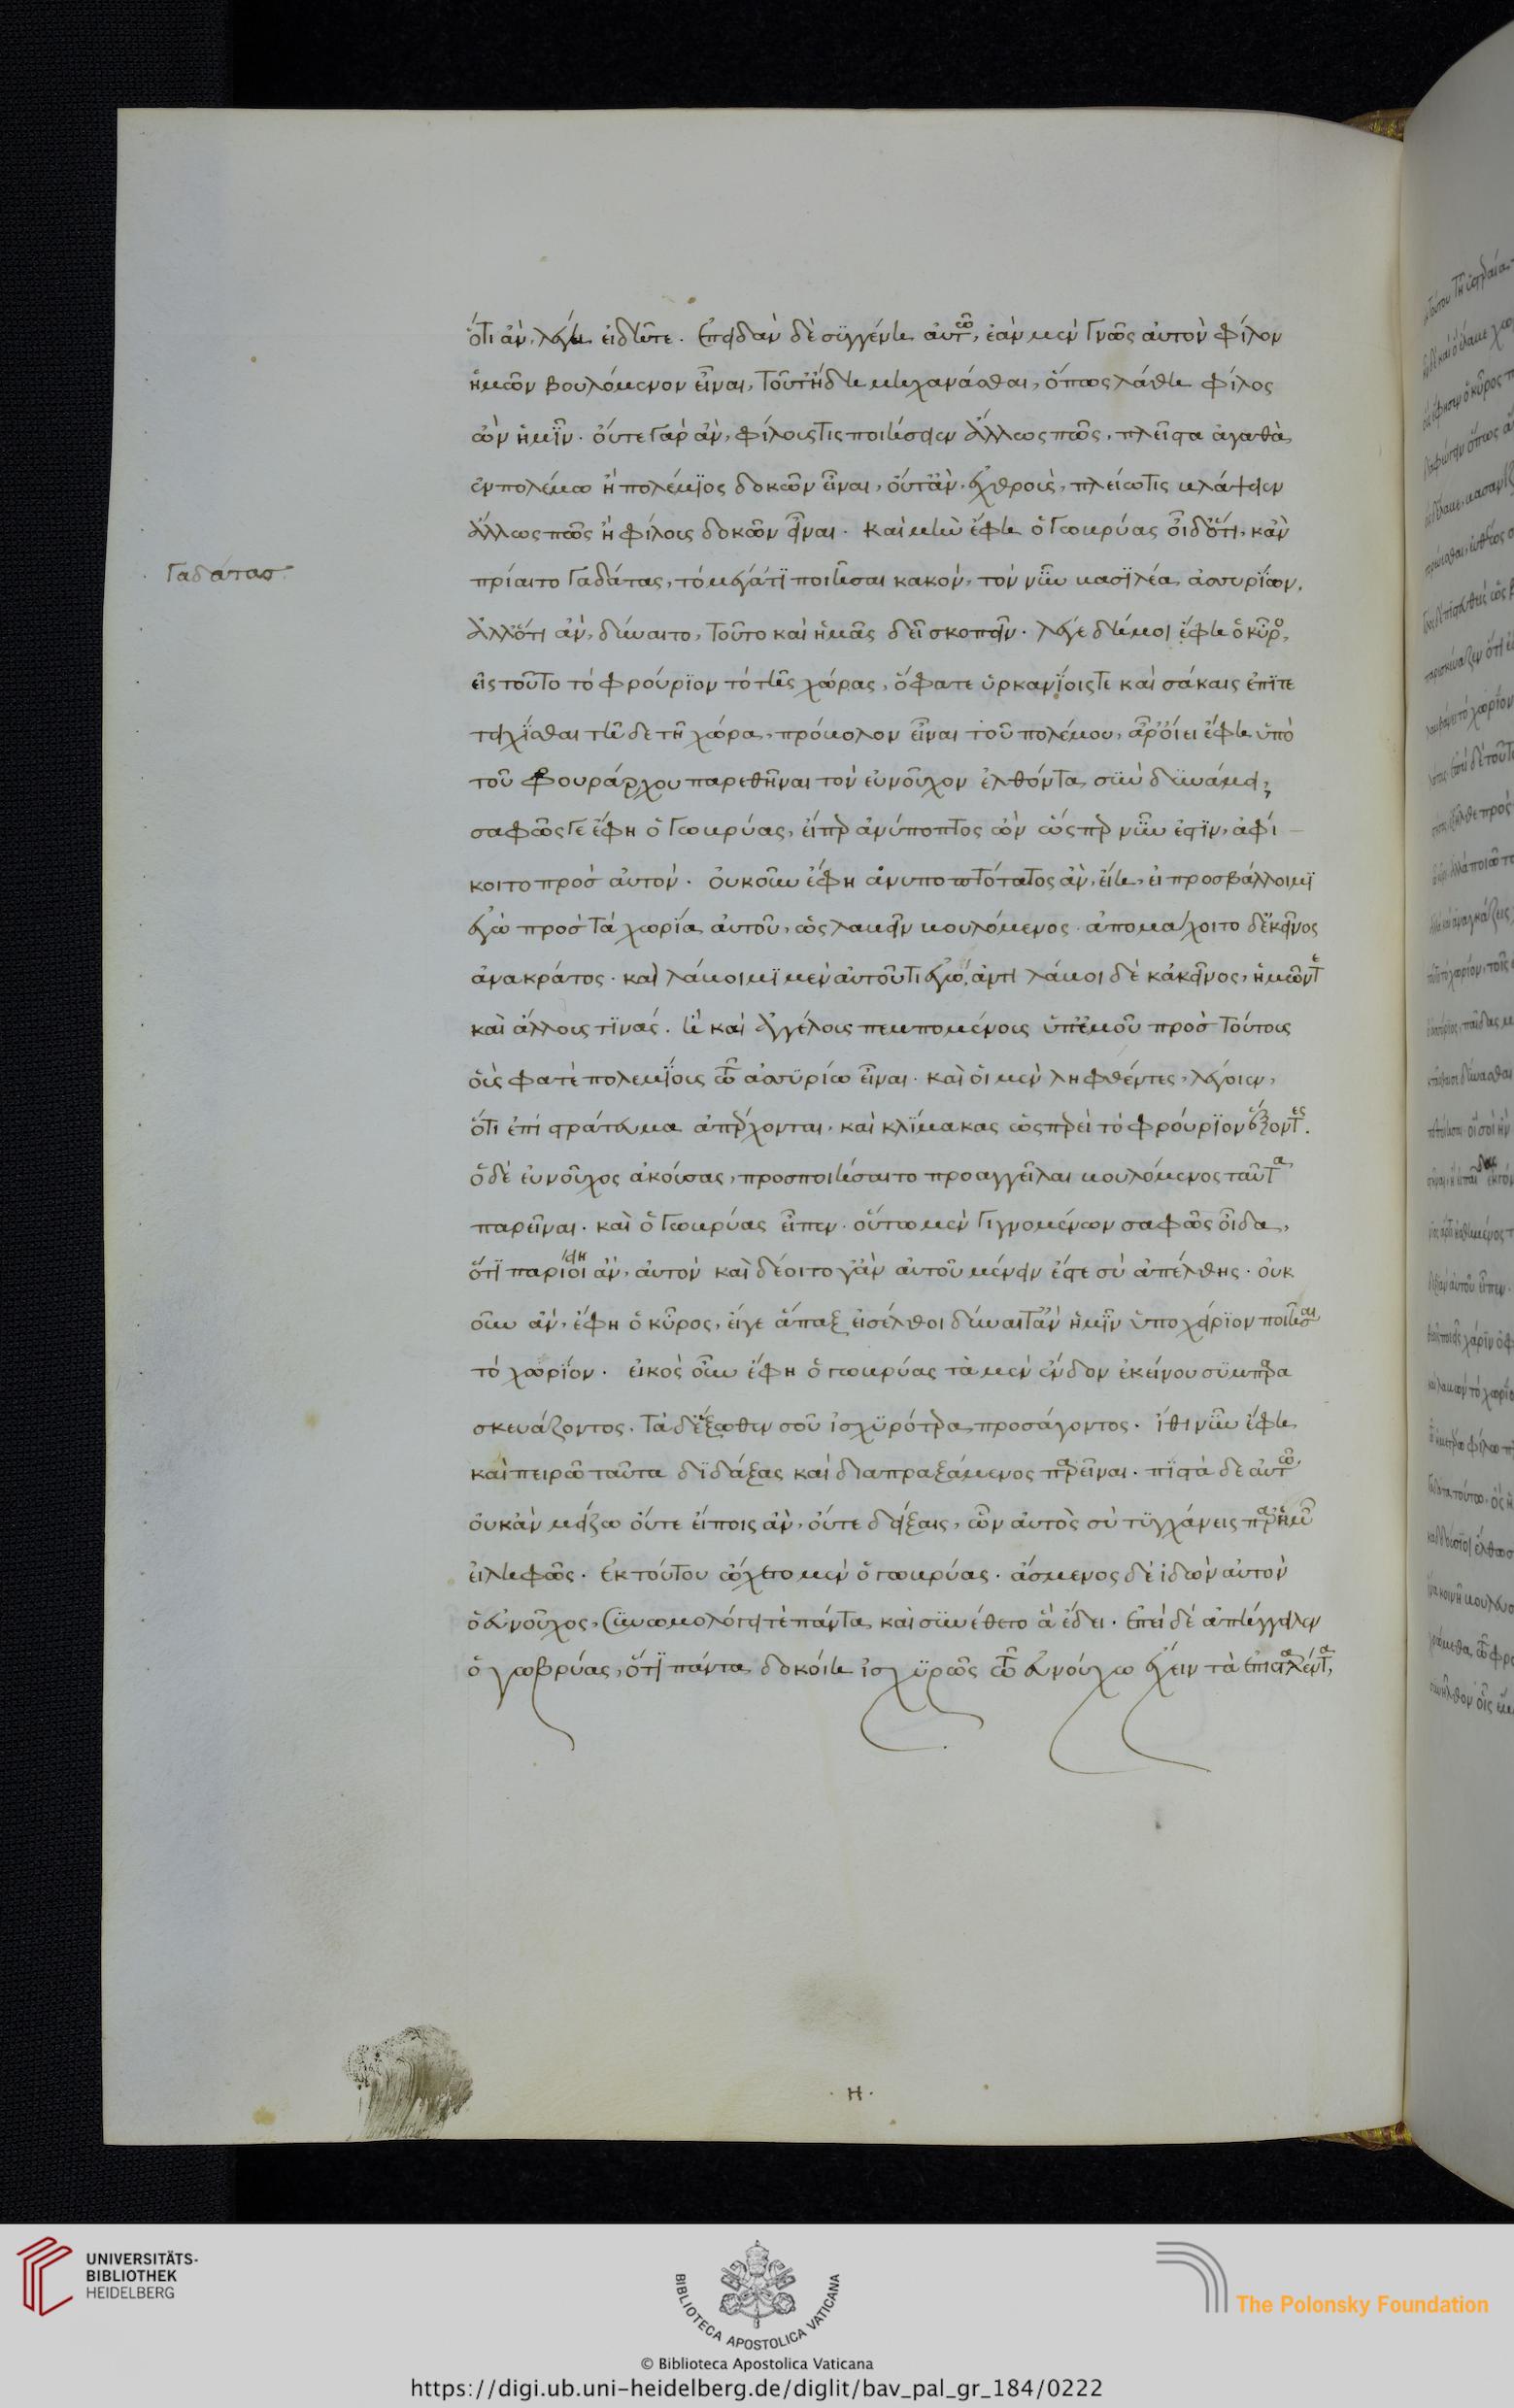 ὅτι ἂν λέγη εἰδῆτε. Ἐπειδὰν δὲ συγγένη αὐτῶ, ἐὰν μὲν γνῶς αὐτὸν φίλον
ἡμῶν βουλόμενον εἶναι, τοῦτ ἤδη μηχανᾶσθαι, ὅπως λάθη φίλος
ὢν ἡμῖν. οὔτε γὰρ ἂν, φίλους τις ποιήσειεν ἄλλως πῶς, πλεῖστα ἀγαθὰ
ἐν πολέμω ἢ πολέμϊος δοκῶν εἶναι, οὔτ ἂν ἐχθροὺς, πλείω τις βλάψειεν
ἄλλως πῶς ἢ φίλος δοκῶν εἶναι. Καὶ μὴν ἔφη ὁ Γωβρύας οἶδ ὅτι, κἂν
Γαδάτας
πρίαιτο Γαδάτας, τὸ μέγα τϊ ποιῆσαι κακὸν, τὸν νῦν βασϊλέα ἀσσυρίων,
ἀλλ ὅτι ἂν, δύναιτο, τοῦτο καὶ ἡμᾶς δεῖ σκοπεῖν. λέγε δή μοι ἔφη ὁ κῦρος,
εἰς τοῦτο τὸ φρούρϊον τὸ τῆς χώρας, ὅ φατε ὑρκανίοις τε καὶ σάκαις ἐπϊτε
τειχίσθαι τῆδε τῆ χώρα, πρόβολον εἶναι τοῦ πολέμου, ἆρ οἴει ἔφη ὑπὸ
τοῦ φρουράρχου παρεθῆναι τὸν εὐνοῦχον ἐλθόντα σὺν δυνάμει;
σαφῶς γε ἔφη ὁ Γωβρύας, εἴπερ ἀνύποπτος ὢν ὥσπερ νῦν ἐστϊν, ἀφί
κοιτο πρὸς αὐτόν. οὐκοῦν ἔφη ἀνυποπτότατος ἂν, εἴη, εἰ προσβάλλοιμϊ
ἐγὼ πρὸς τὰ χωρία αὐτοῦ, ὡς λαβεῖν βουλόμενος. ἀπομάχοιτο δ ἐκεῖνος
ἀνακράτος. καὶ λάβοιμϊ μὲν αὐτοῦ τι ἐγὼ, ἀντιλάβοι δὲ κἀκεῖνος, ἡμῶν τ
καὶ ἄλλους τϊνάς. ἢ καὶ ἀγγέλους πεμπομένους ὑπ ἐμοῦ πρὸς τούτους
οὓς φατὲ πολεμίους τῶ ἀσσυρίω εἶναι. καὶ οἱ μὲν ληφθέντες, λέγοιεν,
ὅτι ἐπὶ στράτευμα ἀπέρχονται, καὶ κλίμακας ὡς περεὶ τὸ φρούρϊον ἕξοντες.
ὁ δὲ εὐνοῦχος ἀκούσας, προσποιήσαιτο προαγγεῖλαι βουλόμενος ταῦτα
παρεῖναι. καὶ ὁ Γωβρύας εἶπεν. οὕτω μὲν γιγνομένων σαφῶς οἶδα,
ὅτϊ παριοῖ ἂν, αὐτὸν καὶ δέοιτο γἂν αὐτοῦ μένειν ἔστε σὺ ἀπέλθης. οὐκ
οῦν ἂν, ἔφη ὁ κῦρος, εἴγε ἅπαξ εἰσέλθοι δύναιτ ἂν ἡμῖν ὑποχείρϊον ποιῆσαι
τὸ χωρίον. εἰκὸς οὖν ἔφη ὁ γωβρύας τὰ μὲν ἔνδον ἐκείνου συμπαρα
σκευάζοντος. τὰ δ ἔξωθεν σοῦ ἰσχυρότερα προσάγοντος. ἴθι νῦν ἔφη
καὶ πειρῶ ταῦτα δϊδάξας καὶ διαπραξάμενος παρεῖναι. πϊστὰ δὲ αὐτῶ
οὐκ ἂν μείζω οὔτε εἴποις ἂν, οὔτε δείξαις, ὧν αὐτὸς σὺ τυγχάνεις παρ ἡμῶν
εἰληφώς. ἐκ τούτου ὤχετο μὲν ὁ γωβρύας. ἄσμενος δὲ ἰδὼν αὐτὸν
ὁ εὐνοῦχος, συνωμολόγει τὲ πάντα καὶ συνέθετο ἃ ἔδει. Ἐπεὶ δὲ ἀπήγγειλεν
ὁ γωβρύας, ὅτϊ πάντα δοκοίη ἰσχυρῶς τῶ εὐνούχω ἔχειν τὰ ἐπισταλέντα,
· Η ·
UNIVERSITÄTS-
BIBLIOTHEK
HEIDELBERG
BIBLIOTECA APOSTOLICA VATICANA
The Polonsky Foundation
© Biblioteca Apostolica Vaticana
https://digi.ub.uni-heidelberg.de/diglit/bav_pal_gr_184/0222